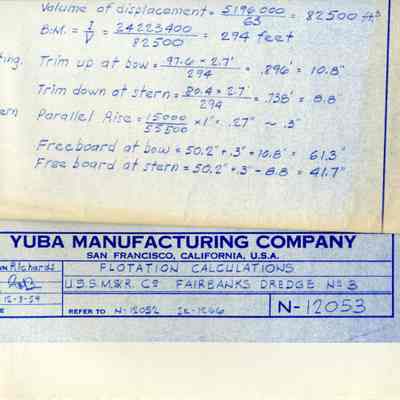 Volume of displacement = 5196000 / 63 = 82500 ft³
B.M. = I / V = 24223400 / 82500 = 294 feet
Trim up at bow = 97.6 × 2.7' / 294 = .896' = 10.8"
Trim down at stern = 80.4 × 2.7' / 294 = .738' = 8.8"
Parallel Rise = 15000 / 55500 × 1" = .27" ~ .3"
Freeboard at bow = 50.2" + .3" + 10.8" = 61.3"
Freeboard at stern = 50.2" + .3" - 8.8 = 41.7"
YUBA MANUFACTURING COMPANY
SAN FRANCISCO, CALIFORNIA, U.S.A.
Richards
FLOTATION CALCULATIONS
U.S.S.M.&R. Co FAIRBANKS DREDGE No 3
REFER TO N-12052
N-12053